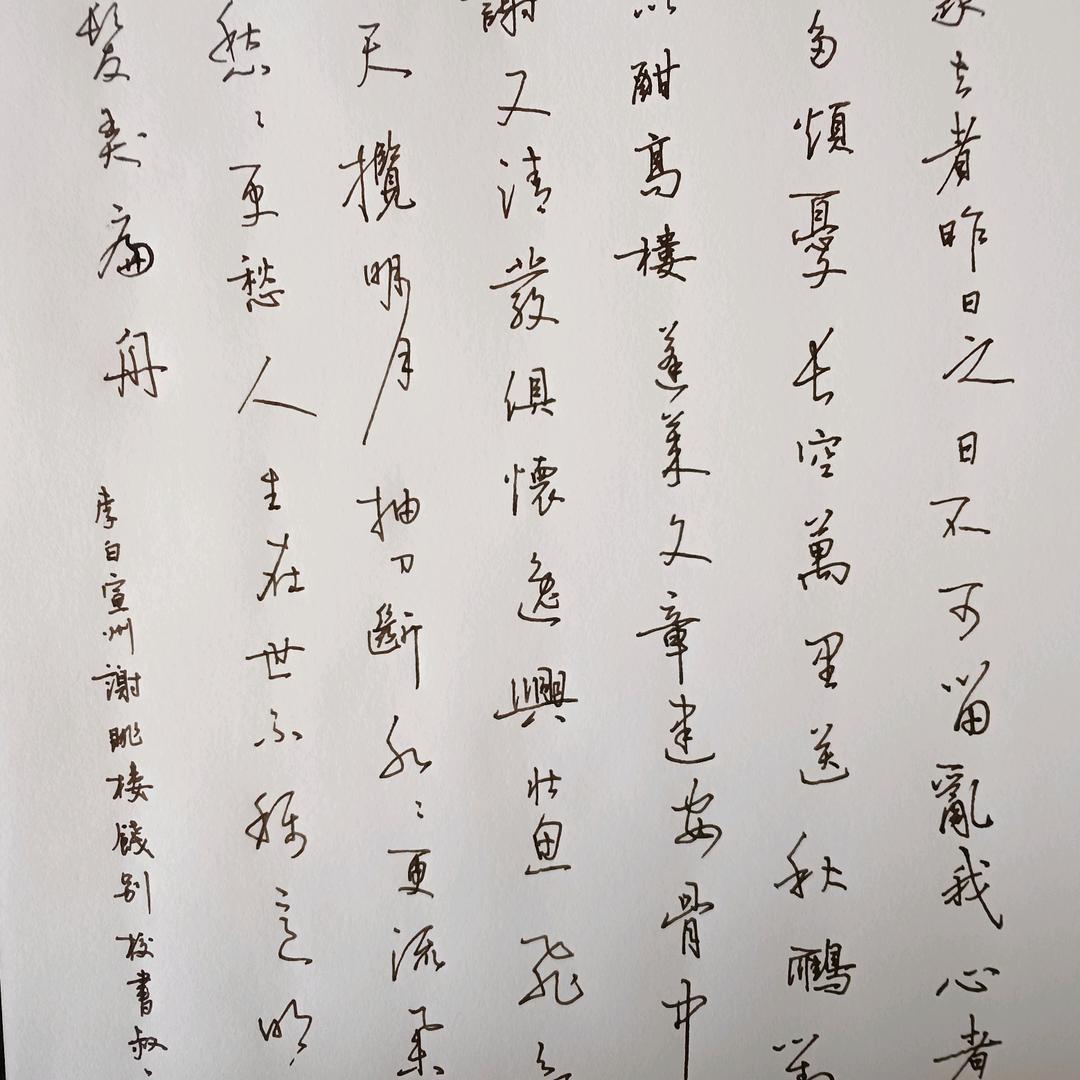 去者昨日之日不可留亂我心者
多煩憂長空萬里送秋鴈對
以酣高樓蓬萊文章建安骨中
謝又清發俱懷逸興壯思飛
天攬明月抽刀斷水〻更流
愁〻更愁人生在世不稱意明
髮弄扁舟
李白宣州謝朓樓餞別校書叔